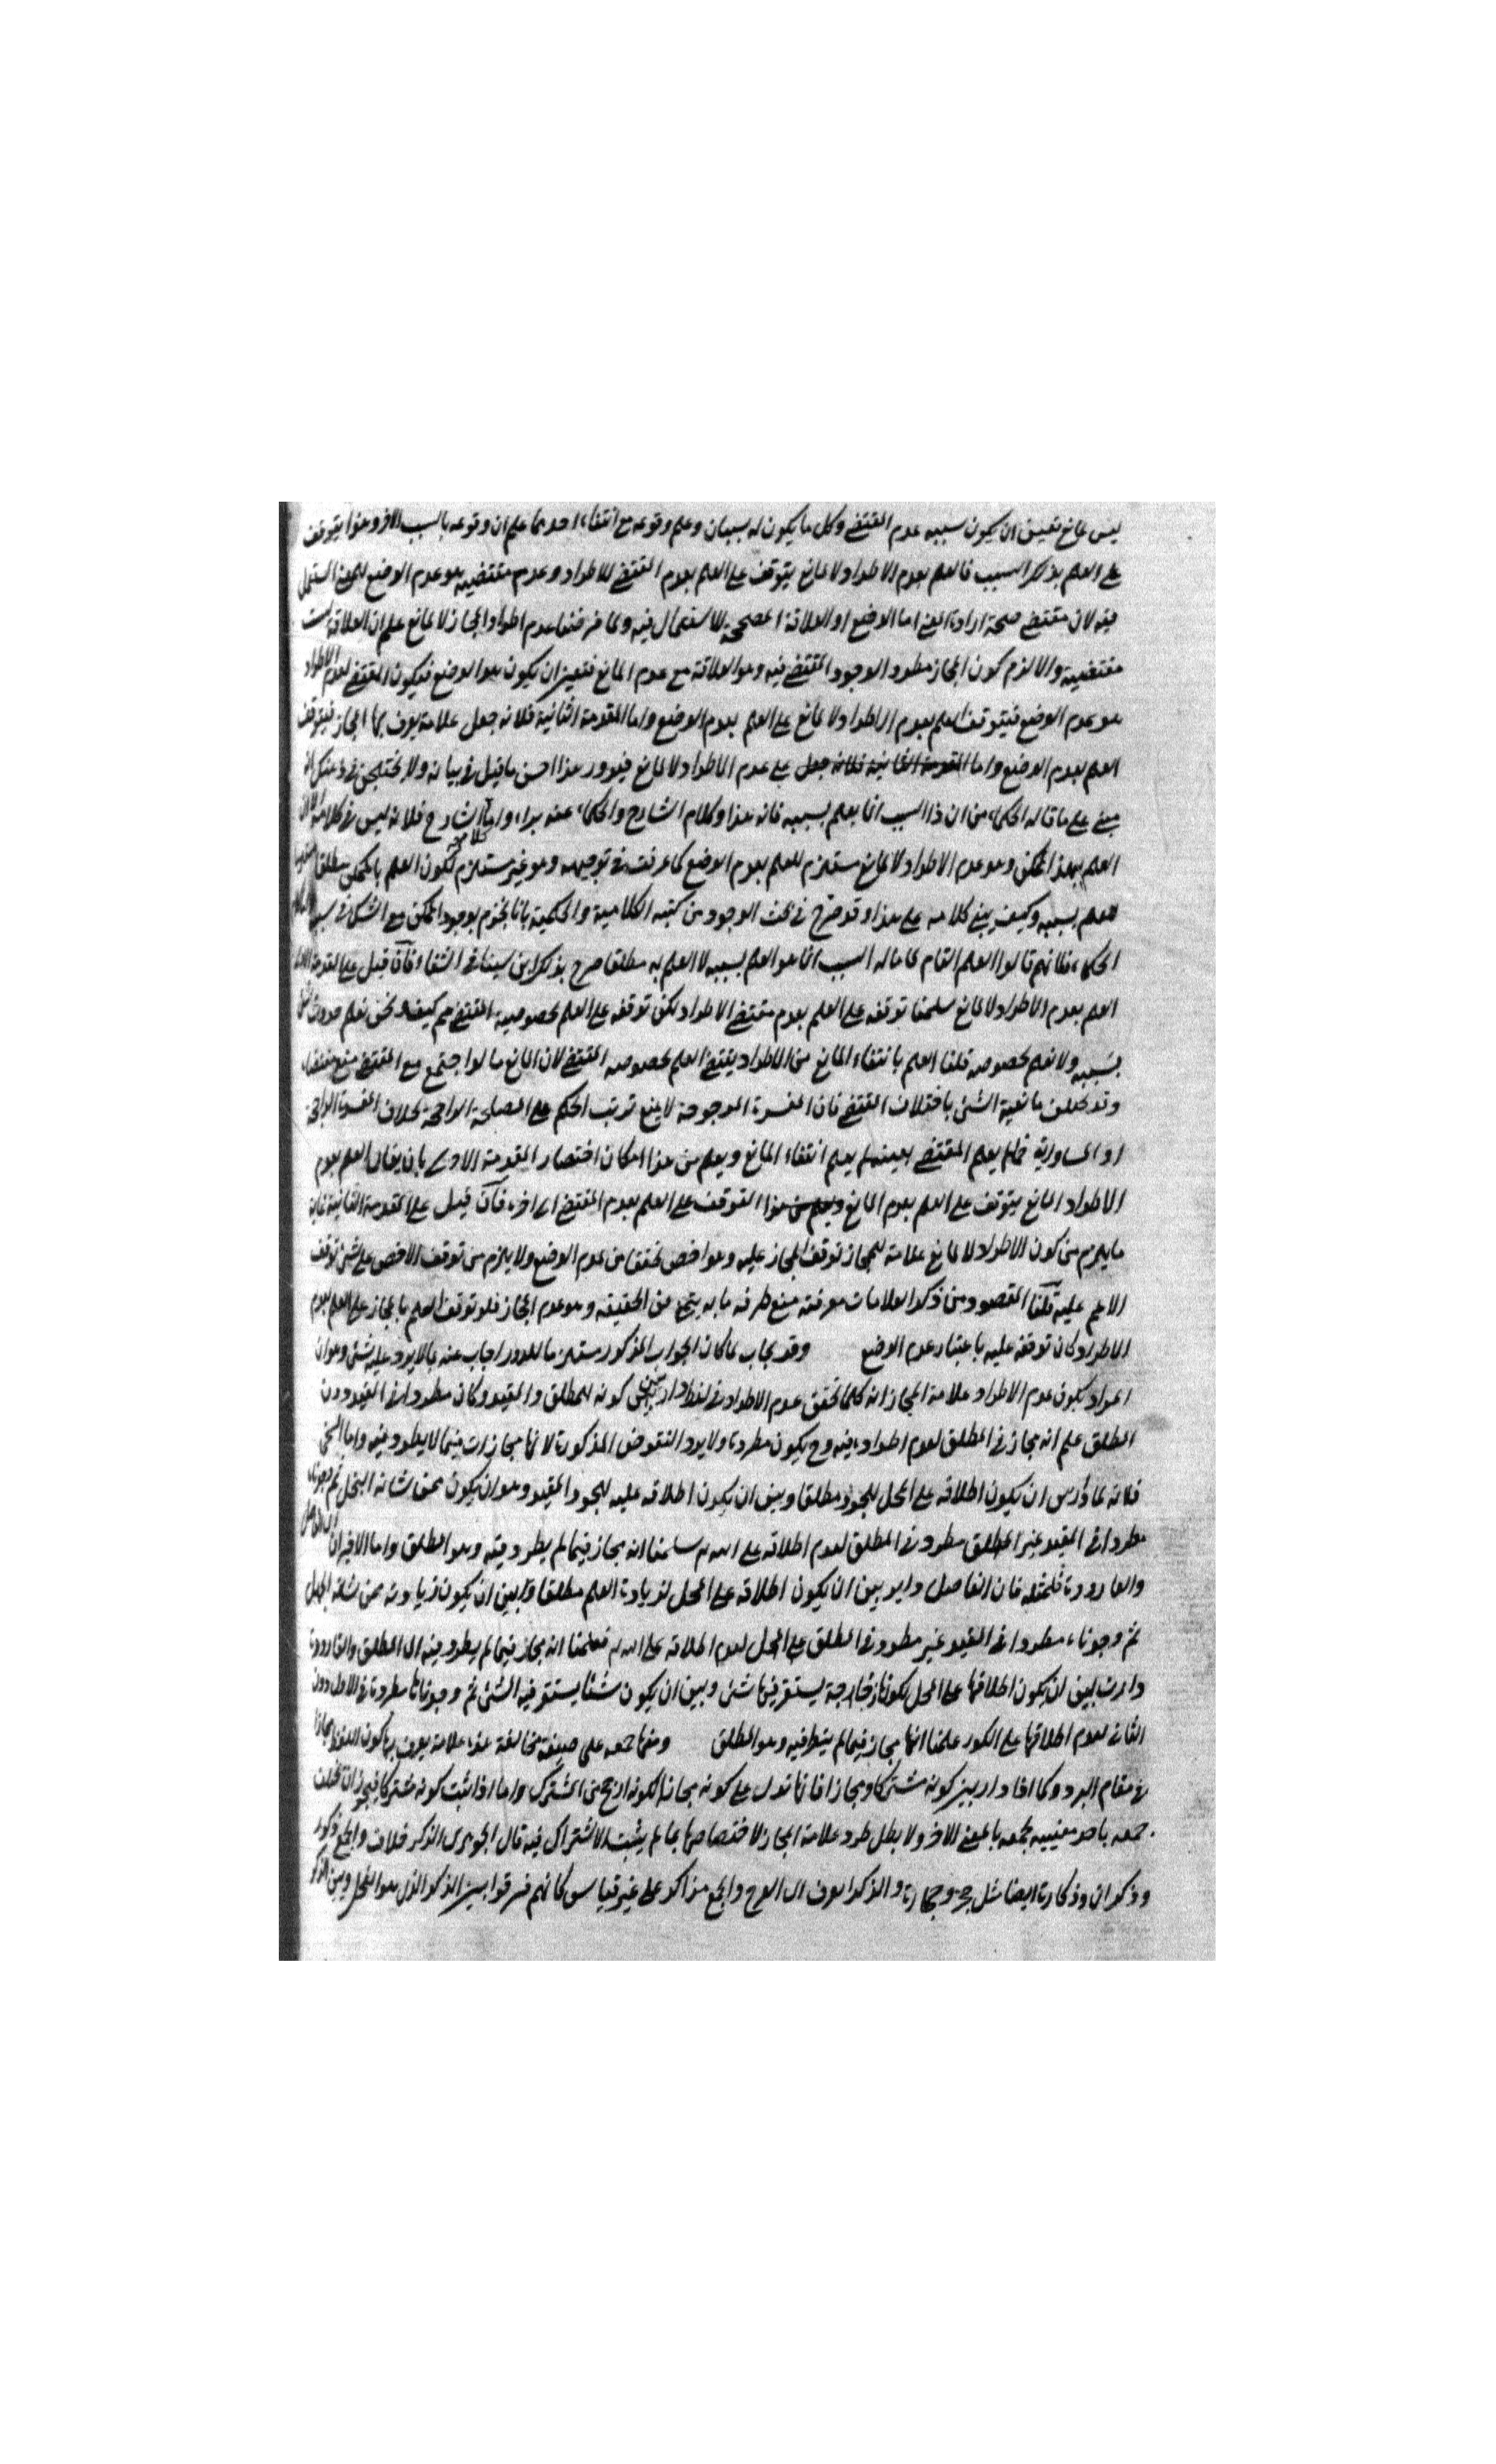 ليس لمانع تعين ان يكون سببه عدم المقتضى وكل ما يكون له سببان وعلم وقوعه مع انتفاء احدهما علم ان وقوعه بالسبب الاخر وهذا يتوقف
على العلم بذلك السبب فالعلم بعدم الاطراد لا لمانع يتوقف على العلم بعدم المقتضى للاطراد وعدم مقتضيه هو عدم الوضع للمعنى المستعمل
فيه لان مقتضى صحة ارادة المعنى اما الوضع او العلاقة المصححة للاستعمال فيه ولما فرضنا عدم اطراد المجاز لا لمانع علم ان العلاقة ليست
مقتضية والا لزم كون المجاز مطردا لوجود المقتضى فيه وهو العلاقة مع عدم المانع فتعين ان يكون هو الوضع فيكون المقتضى لعدم الاطراد
هو عدم الوضع فيتوقف العلم بعدم الاطراد لا لمانع على العلم بعدم الوضع واما المقدمة الثانية فلانه جعل علامة يعرف بها المجاز فيتوقف
العلم بعدم الوضع واما المقدمة الثانية فلانه جعل على عدم الاطراد لا لمانع فيدور هذا احسن ما قيل في بيانه ولا يختلجن في ذهنك انه
مبنى على ما قاله الحكماء من ان ذا السبب انما يعلم بسببه فانه هذا وكلام الشارح والحكماء عنه براء واما كلام الشارح فلانه ليس في كلامه الا ان
العلم بهذا الممكن وهو عدم الاطراد لا لمانع مستلزم للعلم بعدم الوضع كما عرفت في توجيهه وهو غير مستلزم لكون العلم بالممكن مطلقا
للعلم بسببه وكيف يبنى كلامه على هذا وقد صرح في بحث الوجود من كتبه الكلامية والحكمية بانا نجزم بوجود الممكن مع الشك في سببه
الحكماء فلانهم قالوا العلم التام بما له السبب انما هو العلم بسببه لا العلم به مطلقا صرح بذلك ابن سينا في الشفاء فان قيل على المقدمة الاولى
العلم بعدم الاطراد لا لمانع سلمنا توقفه على العلم بعدم مقتضى الاطراد لكن توقفه على العلم بخصوصية المقتضى مم كيف ونحن نعلم حدوث
بسببه ولا نعلم خصوصه قلنا العلم بانتفاء المانع من الاطراد يقتضى العلم بخصوصه المقتضى لان المانع ما لو اجتمع مع المقتضى منع مقتضاه
وقد تختلف مانعية الشئ باختلاف المقتضى فان المفسدة المرجوحة لا يمنع ترتب الحكم على المصلحة الراجحة بخلاف المفسدة الراجحة
او المساوية فما لم يعلم المقتضى بعينه لم يعلم انتفاء المانع ويعلم من هذا امكان اختصار المقدمة الاولى بان يقال العلم بعدم
الاطراد لا لمانع يتوقف على العلم بعدم المانع ويعلم من هذا التوقف على العلم بعدم المقتضى الى اخره فان قيل على المقدمة الثانية غاية
ما يلزم من كون الاطراد لا لمانع علامة للمجاز توقف المجاز عليه وهو اخص تحققا من عدم الوضع ولا يلزم من توقف الاخص على شئ توقف
الاعم عليه قلنا المقصود من ذكر العلامات معرفته منع طرفه ما به يتميز من الحقيقة وهو عدم المجاز فلو توقف العلم بالمجاز على العلم بعدم
الاطراد كان توقفه عليه باعتبار عدم الوضع وقد يجاب لما كان الجواب المذكور مستلزما للدور اجاب عنه بما لا يرد عليه شئ وهو ان
المراد بكون عدم الاطراد علامة المجاز انه كلما تحقق عدم الاطراد في لفظ دار بين كونه للمطلق والمقيد وكان مطردا في المقيد دون
المطلق علم انه مجاز في المطلق لعدم اطراده فيه وح يكون مطردة ولا يرد النقوض المذكورة لانها مجازات فيما لا يطرد فيه واما السخى
فلانه لما دار بين ان يكون اطلاقه على المحل للجود مطلقا وبين ان يكون اطلاقه عليه للجود المقيد وهو ان يكون ممن شانه البخل ثم وجدناه
مطردا في المقيد غير المطلق مطرد في المطلق لعدم اطلاقه على الله تعالى علمنا انه مجاز فيما لم يطرد فيه وهو المطلق واما الاخيران
والقارورة فلمثله فان الفاضل دائر بين ان يكون اطلاقه على المحل لزيادة العلم مطلقا وبين ان يكون زيادته ممن شانه الجهل
ثم وجدناه مطردا في المقيد غير مطرد في المطلق على المحل لعدم اطلاقه على الله تعالى فعلمنا انه مجاز فيما لم يطرد فيه اى المطلق والقارورة
دارت بين ان يكون اطلاقها على المحل لكونها زجاجة يستقر فيها شئ وبين ان يكون شئا يستقر فيه الشئ ثم وجدناها مطردة في الاول دون
الثانى لعدم اطلاقها على الكوز علمنا انها مجاز فيما لم يطرد فيه وهو المطلق ومنها جمعه على صيغة مخالفة هذه علامة يعرف بها كون اللفظ مجازا
في مقام التردد وكما اذا دار بين كونه مشتركا ومجازا فانها تدل على كونه مجازا لكونه ارجح من المشترك واما اذا ثبت كونه مشتركا فيجوز ان يختلف
جمعه باحد معنييه لجمعه بالمعنى الاخر ولا يبطل طرد علامة المجاز لاختصاصها بما لم يثبت الاشتراك فيه قال الجوهرى الذكر خلاف والجمع ذكور
وذكران وذكارة ايضا مثل حجر وحجارة والذكر العوف اى الفرج والجمع مذاكير على غير قياس كانهم فرقوا بين الذكر الذى هو الفحل وبين الذكر